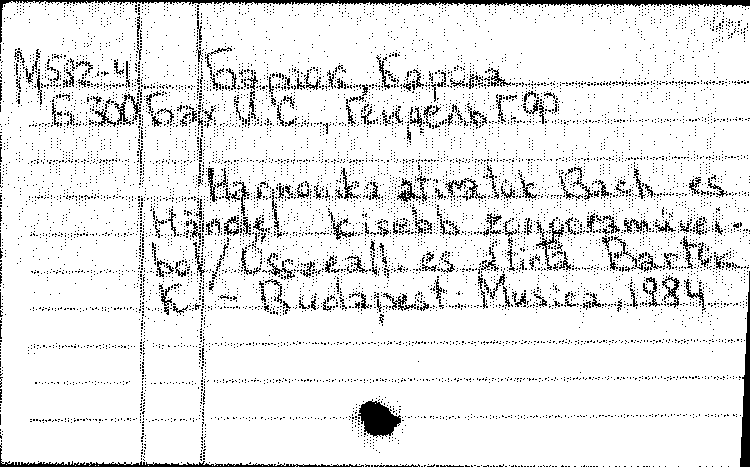 М582-4 Барток, Карола
Б 300 Бах И.С., Гендель Г.Ф
Harmonika átiratok Bach es
Händel kisebb zongoraművei-
ből / Összeáll. es átirta Bartok
K. - Budapest: Musica, 1984